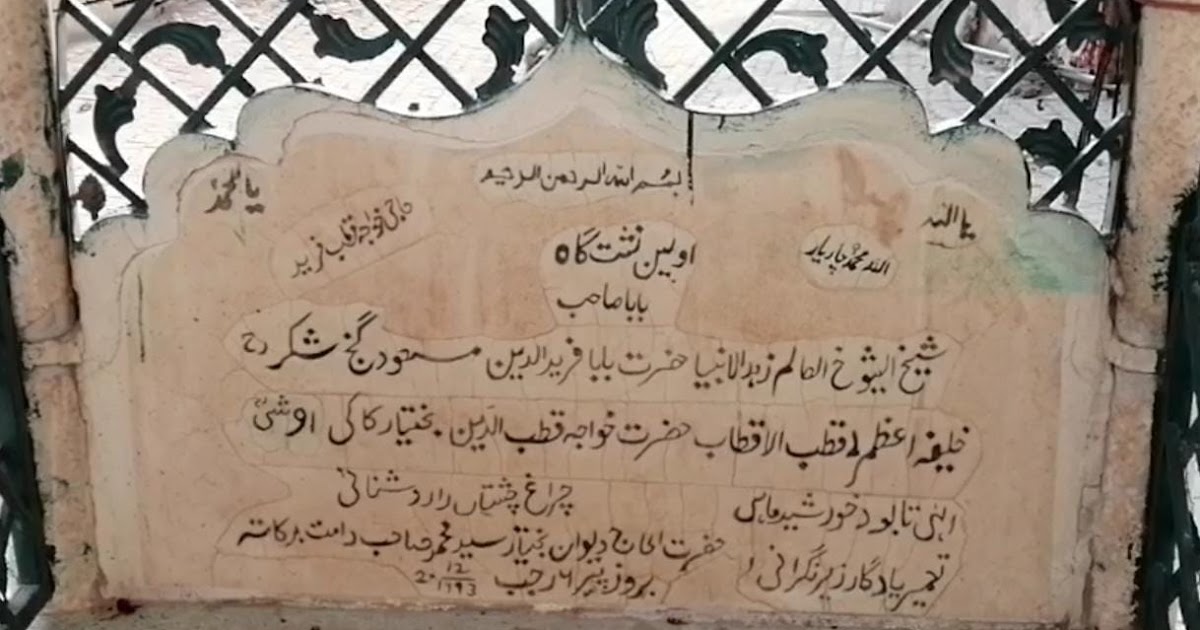 بسم اللہ الرحمن الرحیم
یا اللہ
یا محمدؐ
اللہ محمدؐ چاریار
اولین نشت گاہ
حاجی خواجہ قطب فرید
بابا صاحب
شیخ الشیوخ العالم زہد الانبیا حضرت بابا فرید الدین مسعود گنج شکر رح
خلیفہ اعظم قطب الاقطاب حضرت خواجہ قطب الدین بختیار کاکی اوشیؒ
الہی تا بود خورشید ماہی چراغ چشتیاں را روشنائی
تعمیر یادگار زیر نگرانی حضرت الحاج دیوان بختیار سید محمد صاحب دامت برکاتہ
بروز پیر ۶ رجب